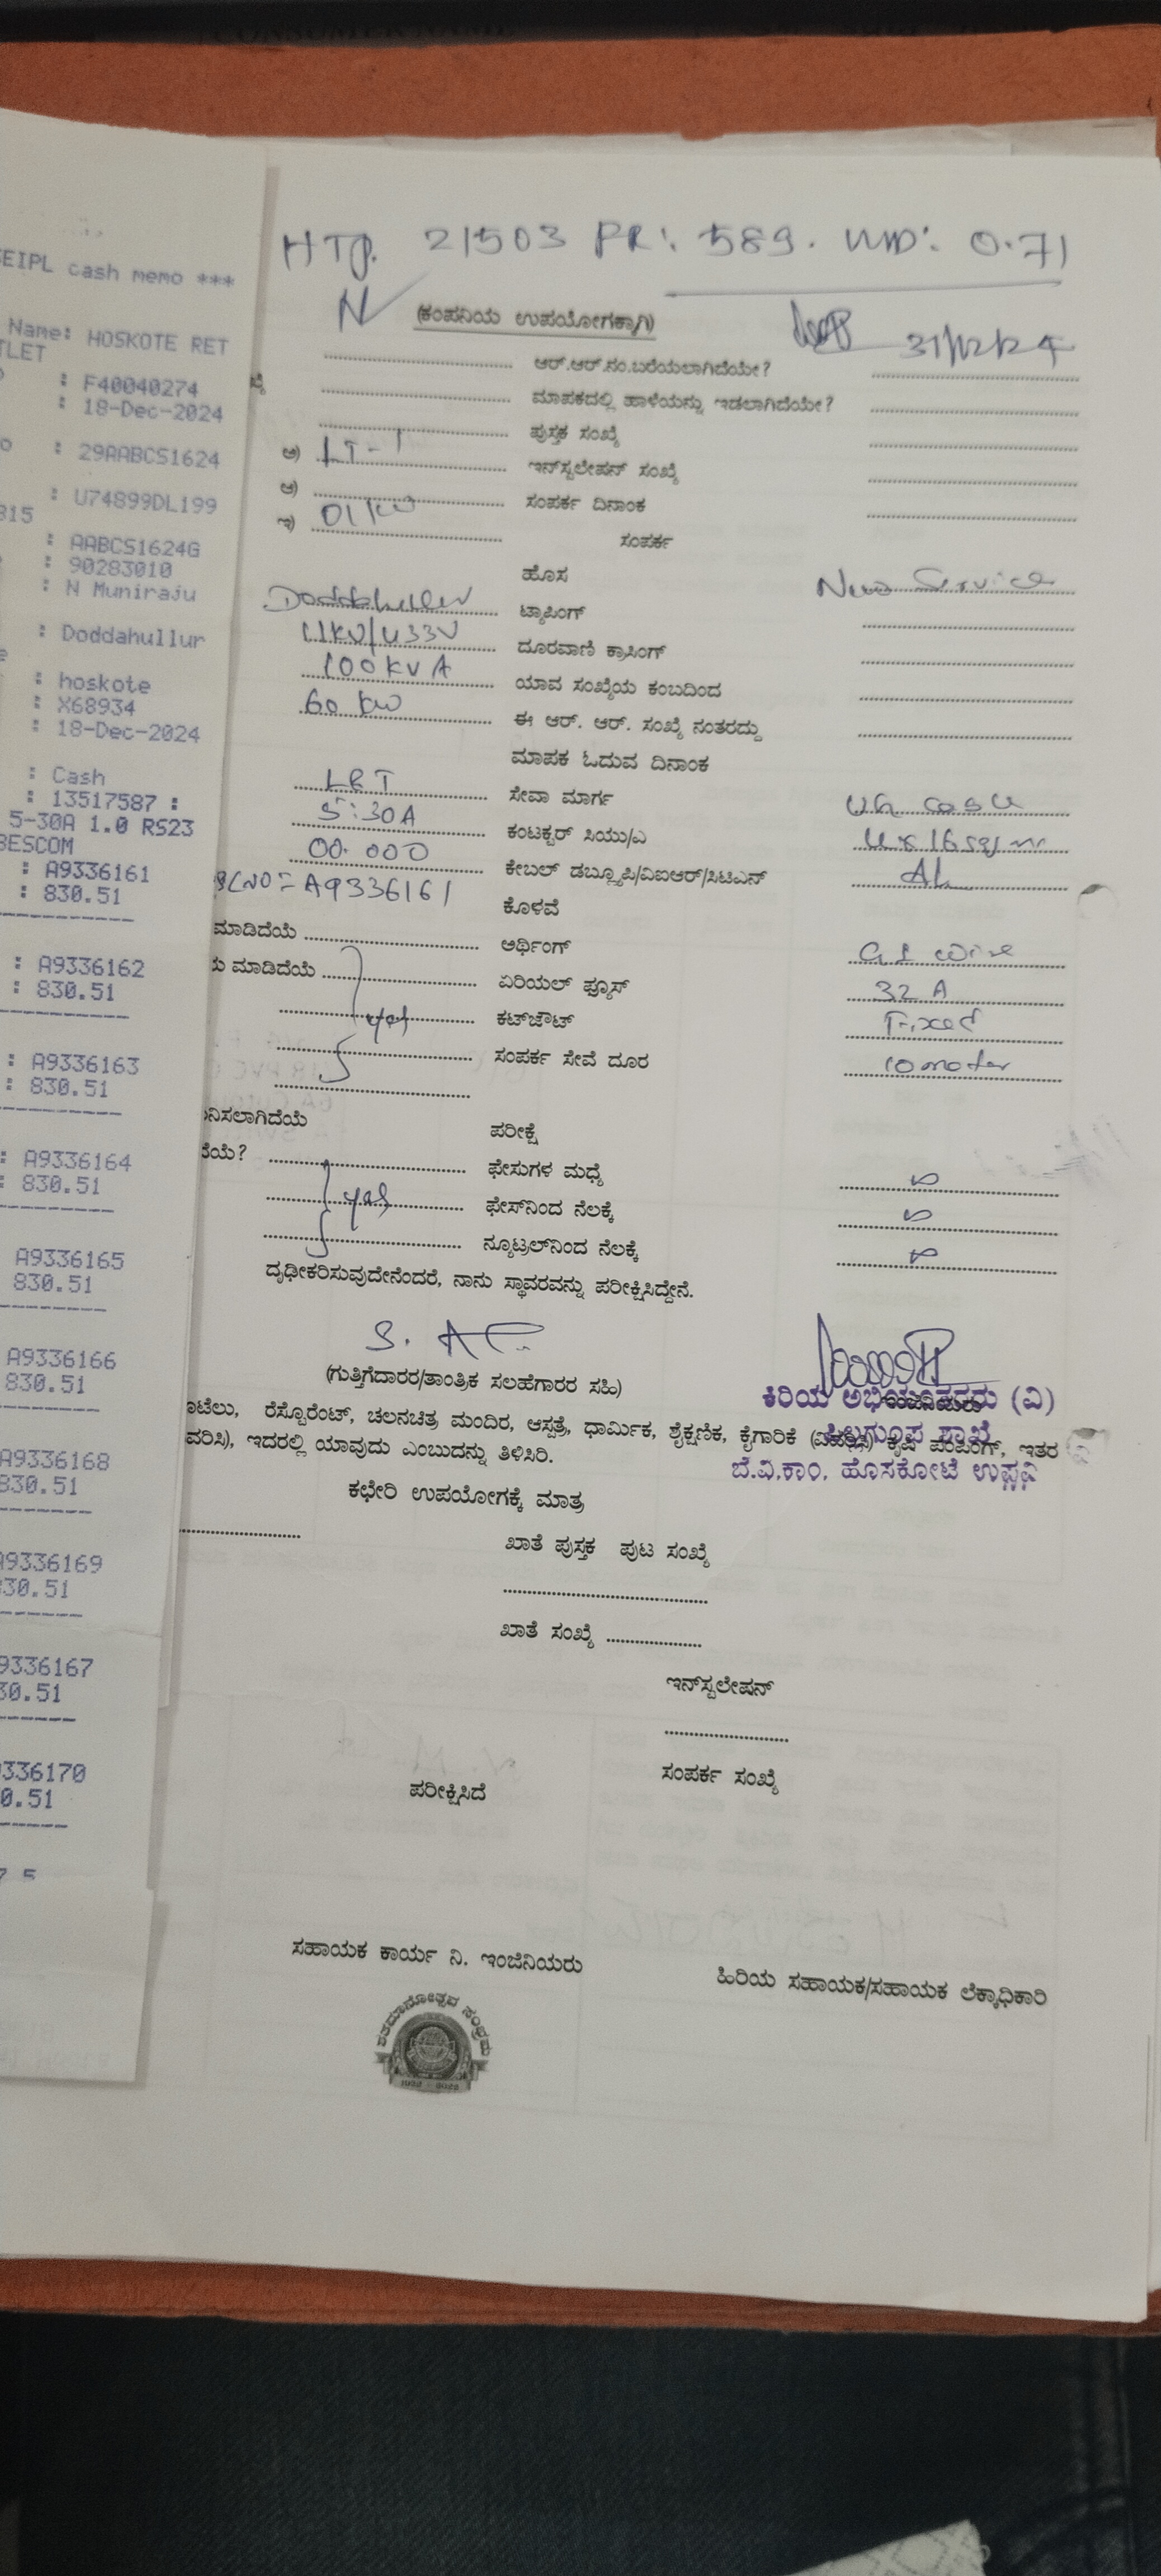 EIPL cash memo ***
Name: HOSKOTE RET
TLET
: F40040274
: 18-Dec-2024
: 29AABCS1624
: U74899DL199
815
: AABCS1624G
: 90283010
: N Muniraju
: Doddahullur
: hoskote
: X68934
: 18-Dec-2024
: Cash
: 13517587 :
5-30A 1.0 RS23
BESCOM
: A9336161
: 830.51
: A9336162
: 830.51
: A9336163
: 830.51
: A9336164
: 830.51
A9336165
830.51
A9336166
830.51
A9336168
830.51
A9336169
30.51
9336167
30.51
336170
0.51
HTP. 21503 PR: 589. 0.71
(ಕಂಪನಿಯ ಉಪಯೋಗಕ್ಕಾಗಿ)
31/12/24
ಆರ್.ಆರ್.ನಂ.ಬರೆಯಲಾಗಿದೆಯೇ?
ಮಾಪಕದಲ್ಲಿ ಹಾಳೆಯನ್ನು ಇಡಲಾಗಿದೆಯೇ?
ಪುಸ್ತಕ ಸಂಖ್ಯೆ
ಅ) LT-1 ಇನ್‌ಸ್ಟಲೇಷನ್ ಸಂಖ್ಯೆ
ಆ) ಸಂಪರ್ಕ ದಿನಾಂಕ
ಇ) 01 KW ಸಂಪರ್ಕ
ಹೊಸ New Service
Doddahullur ಟ್ಯಾಪಿಂಗ್
11KV/433V ದೂರವಾಣಿ ಕ್ರಾಸಿಂಗ್
100 KVA ಯಾವ ಸಂಖ್ಯೆಯ ಕಂಬದಿಂದ
60 KW ಈ ಆರ್. ಆರ್. ಸಂಖ್ಯೆ ನಂತರದ್ದು
ಮಾಪಕ ಓದುವ ದಿನಾಂಕ
L&T ಸೇವಾ ಮಾರ್ಗ UG
5-30A ಕಂಟಕ್ಟರ್ ಸಿಯು/ಎ 4x16 sq/mm
00.000 ಕೇಬಲ್ ಡಬ್ಲ್ಯೂಪಿ/ವಿಐಆರ್/ಸಿಟಿಎಸ್ AL
SLNO = A9336161 ಕೊಳವೆ
ಮಾಡಿದೆಯೆ ಅರ್ಥಿಂಗ್ GI wire
ಮಾಡಿದೆಯೆ ಏರಿಯಲ್ ಫ್ಯೂಸ್ 32 A
yes ಕಟ್‌ಔಟ್ Fixed
ಸಂಪರ್ಕ ಸೇವೆ ದೂರ 10 meter
ನಿಸಲಾಗಿದೆಯೆ ಪರೀಕ್ಷೆ
ದೆಯೆ? ಫೇಸುಗಳ ಮಧ್ಯೆ
yes ಫೇಸ್‌ನಿಂದ ನೆಲಕ್ಕೆ
ನ್ಯೂಟ್ರಲ್‌ನಿಂದ ನೆಲಕ್ಕೆ
ದೃಢೀಕರಿಸುವುದೇನೆಂದರೆ, ನಾನು ಸ್ಥಾವರವನ್ನು ಪರೀಕ್ಷಿಸಿದ್ದೇನೆ.
(ಗುತ್ತಿಗೆದಾರರ/ತಾಂತ್ರಿಕ ಸಲಹೆಗಾರರ ಸಹಿ)
ಕಿರಿಯ ಅಭಿಯಂತರರು (ವಿ)
ಶಾಖೆ
ಬೆ.ವಿ.ಕಾಂ. ಹೊಸಕೋಟೆ ಉಪ
ೂಟೆಲು, ರೆಸ್ಟೊರೆಂಟ್, ಚಲನಚಿತ್ರ ಮಂದಿರ, ಆಸ್ಪತ್ರೆ, ಧಾರ್ಮಿಕ, ಶೈಕ್ಷಣಿಕ, ಕೈಗಾರಿಕೆ (ವಿವರಿಸಿ) ಕೃಷಿ ಪಂಪಿಂಗ್, ಇತರ
ವರಿಸಿ), ಇದರಲ್ಲಿ ಯಾವುದು ಎಂಬುದನ್ನು ತಿಳಿಸಿರಿ.
ಕಛೇರಿ ಉಪಯೋಗಕ್ಕೆ ಮಾತ್ರ
ಖಾತೆ ಪುಸ್ತಕ ಪುಟ ಸಂಖ್ಯೆ
ಖಾತೆ ಸಂಖ್ಯೆ
ಇನ್‌ಸ್ಟಲೇಷನ್
ಸಂಪರ್ಕ ಸಂಖ್ಯೆ
ಪರೀಕ್ಷಿಸಿದೆ
ಸಹಾಯಕ ಕಾರ್ಯ ನಿ. ಇಂಜಿನಿಯರು
ಹಿರಿಯ ಸಹಾಯಕ/ಸಹಾಯಕ ಲೆಕ್ಕಾಧಿಕಾರಿ
ಶತಮಾನೋತ್ಸವ ಸಂಭ್ರಮ